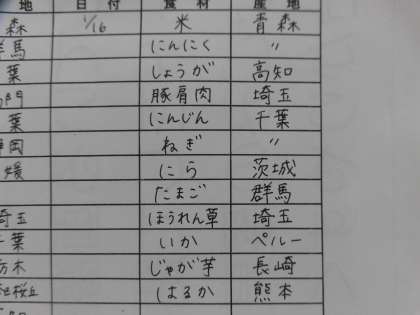 地 日付 食材 産地
森 1/16 米 青森
群馬 にんにく 〃
葉 しょうが 高知
豚肩肉 埼玉
葉 にんじん 千葉
静岡 ねぎ 〃
媛 にら 茨城
たまご 群馬
埼玉 ほうれん草 埼玉
千葉 いか ペルー
栃木 じゃが芋 長崎
桜丘 はるか 熊本